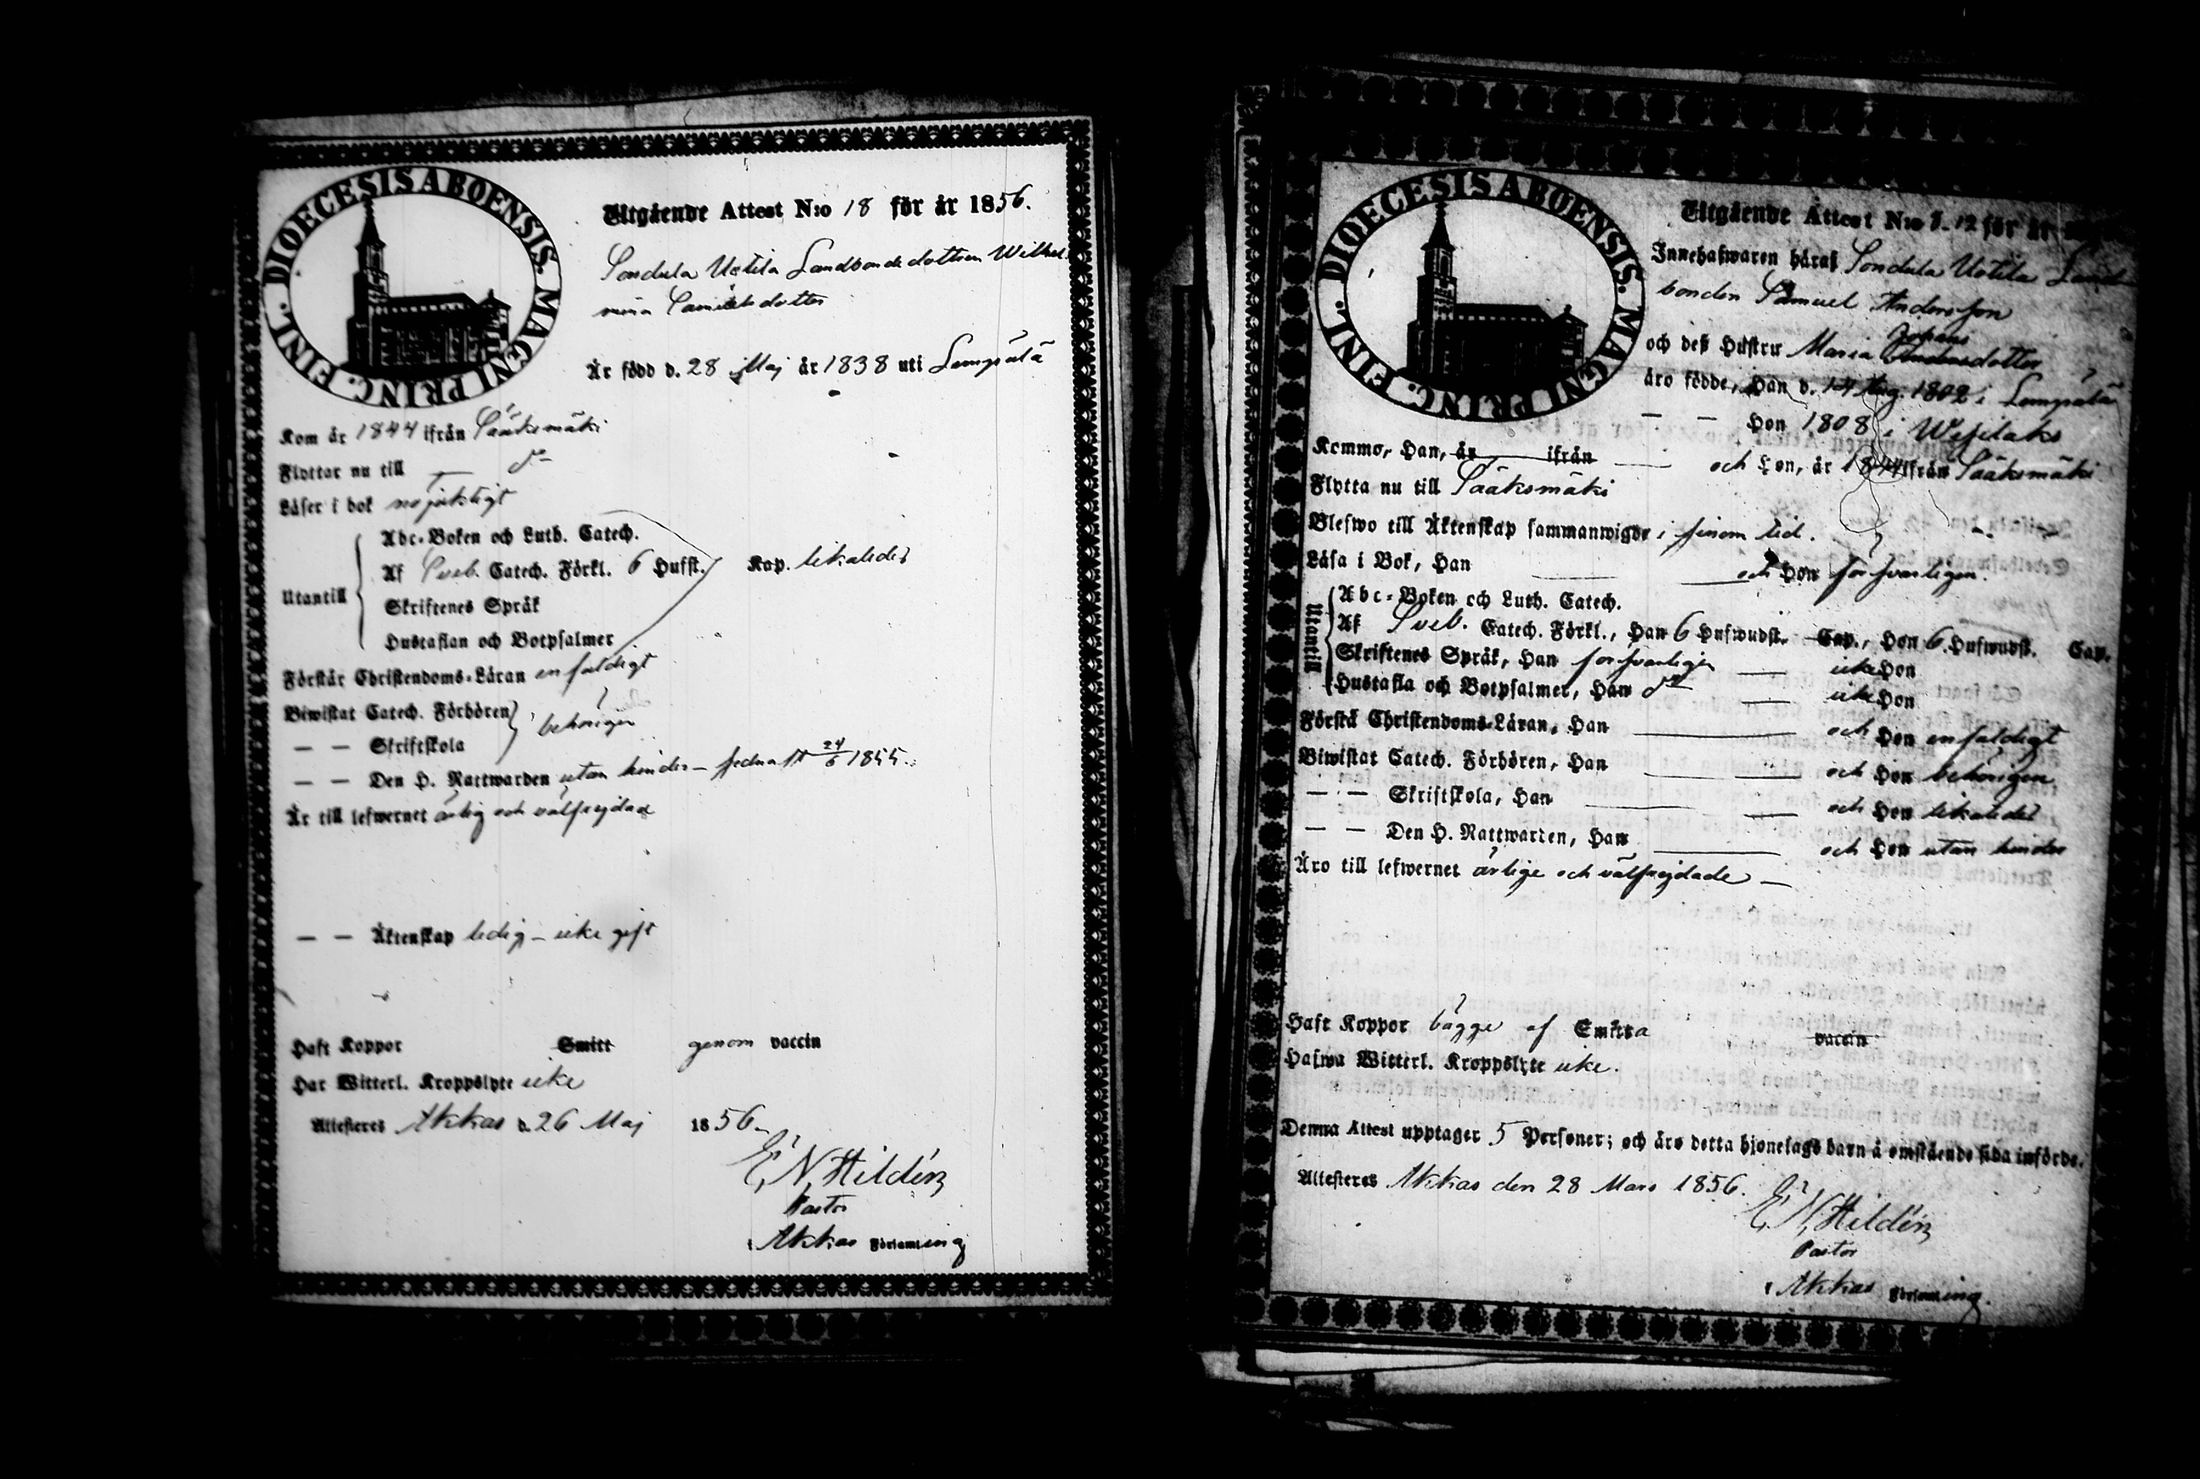 DIOECESIS ABOENSIS. MAGNI PRINC. FINL.
Utgående Attest N:o 18 för år 1856.
Sondula Uotila Landbondedottren Wilhel-
mina Samuelsdotter
Är född d. 28 Maj år 1838 uti Lempälä
Kom år 1844 ifrån Sääksmäki
Flyttar nu till — do
Läser i bok nöjaktigt
Abc-Boken och Luth. Catech.
Af Sveb. Catech. Förkl. 6 Hufst. Kap. likaledes
Utantill
Skriftenes Språk
Hustaflan och Botpsalmer
Förstår Christendoms-Läran enfaldigt
Biwistat Catech. Förhören behörigen
— — Skriftskola
— — Den H. Nattwarden utan hinder – sednast 24/6 1855.
Är till lefwernet ärlig och välfrejdad
— — Äktenskap ledig – icke gift
Haft Koppor Smitt genom vaccin
Har Witterl. Kroppslyte icke
Attesteres Akkas d. 26 Maj 1856.
E. N. Hildén
Pastor
i Akkas Församling
DIOECESIS ABOENSIS. MAGNI PRINC. FINL.
Utgående Attest N:o 12 för år
Innehafwaren häraf Sondula Uotila Land-
bonden Samuel Andersson
Johans
och deß Hustru Maria dotter
äro födde, Han d. 14 Aug. 1802 i Lempälä
— — Hon 1808 i Wesilaks
Kommo, Han, år ifrån — och Hon, år 1844 ifrån Sääksmäki
Flytta nu till Sääksmäki
Blefwo till Äktenskap sammanwigde i sinom tid.
Läsa i Bok, Han — och Hon försvarligen.
Abc-Boken och Luth. Catech.
Utantill
Af Sveb. Catech. Förkl., Han 6 Hufwudst. Cap., Hon 6 Hufwudst. Cap.
Skriftenes Språk, Han försvarligen — icke Hon
Hustafla och Botpsalmer, Han do — icke Hon
Förstå Christendoms-Läran, Han — och Hon enfaldigt
Biwistat Catech. Förhören, Han — och Hon behörigen
— — Skriftskola, Han — och Hon likaledes
— — Den H. Nattwarden, Han — och Hon utan hinder
Äro till lefwernet ärlige och välfrejdade —
Haft Koppor bägge af Smitta vaccin
Hafwa Witterl. Kroppslyte icke.
Denna Attest upptager 5 Personer; och äro detta hjonelags barn å omstående sida införde.
Attesteres Akkas den 28 Mars 1856.
E. N. Hildén
Pastor
i Akkas Församling.